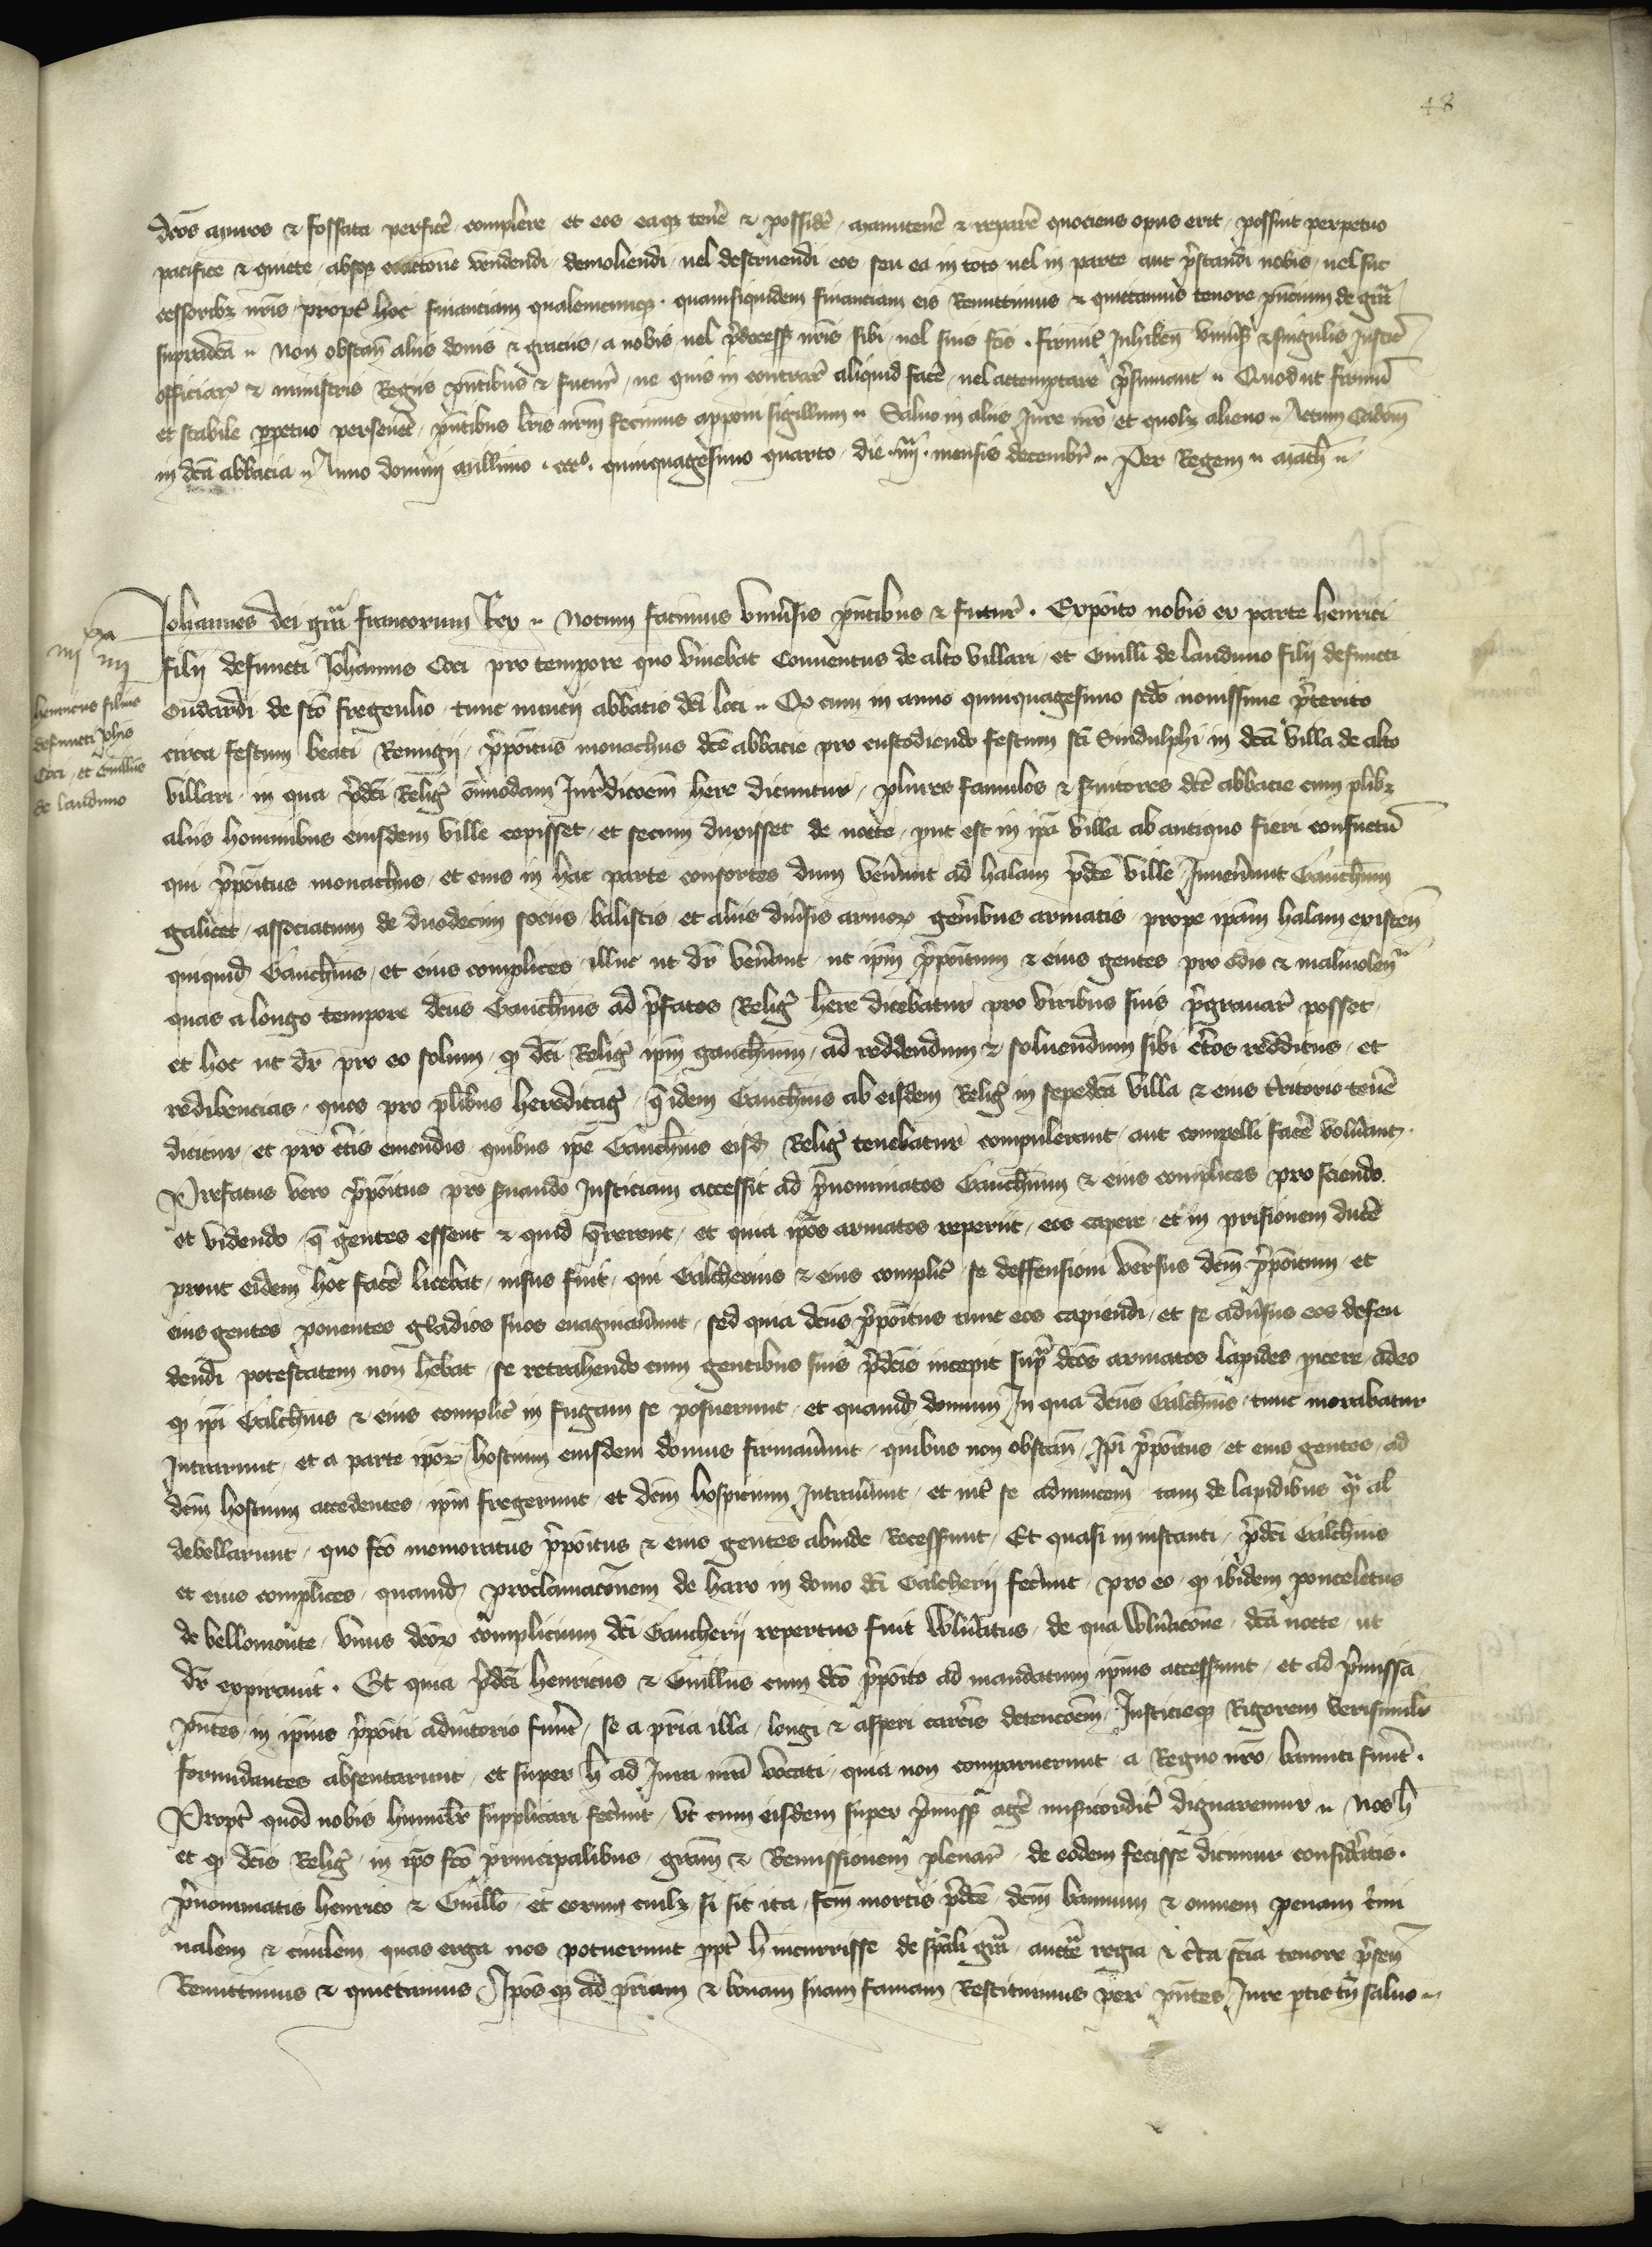 48
dcos muros & fossata perfice complere et eos eaque tenere & possidere manutenere & reparare quociens opus erit possint perpetuo
pacifice & quiete absque coactione vendendi demoliendi vel destruendi eos seu ea in toto vel in parte aut prestandi nobis vel suc
cessoribus nris propter hoc financiam qualemcunque. quamsiquidem financiam eis Remittimus & quittamus tenore pncium de gra
supradca Non obstan aliis donis & graciis a nobis vel predecess nris sibi vel suis fcis. firmit Inhiben univers & singulis Justic
officiar & ministris Regiis pntibus & futur ne quis in contrar aliquid face vel attemptare presumant Quod ut firmu
et stabile ppetuo perseveret pntibus lris nrm fecimus apponi sigillum Salvo in aliis Jure nro et quolibet alieno Actum
in dca abbacia Anno domini millimo ccco. quinquagesimo quarto die mensis decembr Per Regem Math
Johannes dei gra francorum Rex Notum facimus universis pntibus & futur. Exposito nobis ex parte henrici
filii defuncti Johannis Coci pro tempore quo vivebat Conventus de alto villari et Guilli de landuno filii defuncti
Oudardi de sco fregeulio tunc abbatis dci loci Qd cum in anno quinquagesimo scdo novissime preterito
henricus filius
defuncti Johis
Coci et Guillus
de landuno
circa festum beati Remigii prepositus monachus dce abbacie pro custodiendo festum sci Sindulphi in dca villa de alto
villari in qua predci Relig omnimodam Jurdicoem here dicuntur plures famulos & servitores dce abbacie cum plibus
aliis hominibus eiusdem ville cepisset et secum duxisset de nocte put est in ipa villa ab antiquo fieri consuetu
qui prepositus monachus et eius in hac parte consortes dum venerunt ad halam predce ville Invenerunt Gaucherum
galicet associatum de duodecim sociis balistis et aliis diversis armorum generibus armatis prope ipam halam existen
quiquid Gaucherus et eius complices illuc ut dr venerant ut ipm prepositum & eius gentes pro odio & malivolen
quas a longo tempore dcus Gaucherus ad prefatos Relig here dicebatur pro viribus suis pregravare posset
et hoc ut dr pro eo solum qd dci Relig ipm gaucherum ad reddendum & solvendum sibi certos redditus et
redibencias quos pro plibus hereditag que idem Gaucherus ab eisdem Relig in sepedca villa & eius territorio tenere
dicitur et pro certis emendis quibus ipe Gaucherus eisd Relig tenebatur compulerant aut compelli face voluerant.
Prefatus vero prepositus pro servando Justiciam accessit ad prenominatos Gaucherum & eius complices pro sciendo
et videndo que gentes essent & quid quererent et quia ipos armatos reperiit eos capere et in prisionem ducere
prout eidem hoc face licebat nisus fuit qui Galcherus & eius complic se deffensioni versus dcm prepositum et
eius gentes ponentes gladios suos evaginaverunt sed quia dcus prepositus tunc eos capiendi et se adversus eos defen
dendi potestatem non hebat se retrahendo cum gentibus suis predcis incepit supra dcos armatos lapides jicere adeo
qd ipi Galcherus & eius complic in fugam se posuerunt et quamd domum In qua dcus Galcherus tunc morabatur
Intrarunt et a parte ipor hostium eiusdem domus firmaverunt quibus non obstan Ipi prepositus et eius gentes ad
dcm hostium accedentes ipm fregerunt et dcm hospicium Intraverunt et inter se adinvicem tam de lapidibus qm al
debellarunt quo fco memoratus prepositus & eius gentes abinde Recesserunt Et quasi in instanti predci Galcherus
et eius complices quamd proclamaconem de haro in domo dci Galcherii fecerunt pro eo qd ibidem ponceletus
de bellomonte unus dcor complicium dci Gaucherii repertus fuit vulneratus de qua vulneracone dca nocte ut
dr expiravit. Et quia predci henricus & Guillus cum dco preposito ad mandatum ipius accesserunt et ad premissa
pntes in ipius prepositi adiutorio fuerunt se a pria illa longi & asperi carceris detencoem Justicieque Rigorem verisimiliter
formidantes absentarunt et super h ad Jura nra vocati quia non comparuerunt a Regno nro banniti fuerunt.
Propter quod nobis humiliter supplicari fecerunt ut cum eisdem super premiss agere misericorditer dignaremur Nos h
et qd dcis Relig in ipo fco principalibus gram & Remissionem plenar de eodem fecisse dicimur consideratis.
prenominatis henrico & Guillo et eorum cuilibet si sit ita fcm mortis predce dcm bannum & omnem penam crimi
nalem & civilem quas erga nos potuerunt ppter h incurrisse de spali gra auctte regia & certa scia tenore presen
Remittimus & quictamus Ipos qd ad priam & bonam suam famam Restituimus per pntes Jure ptis tn salvo